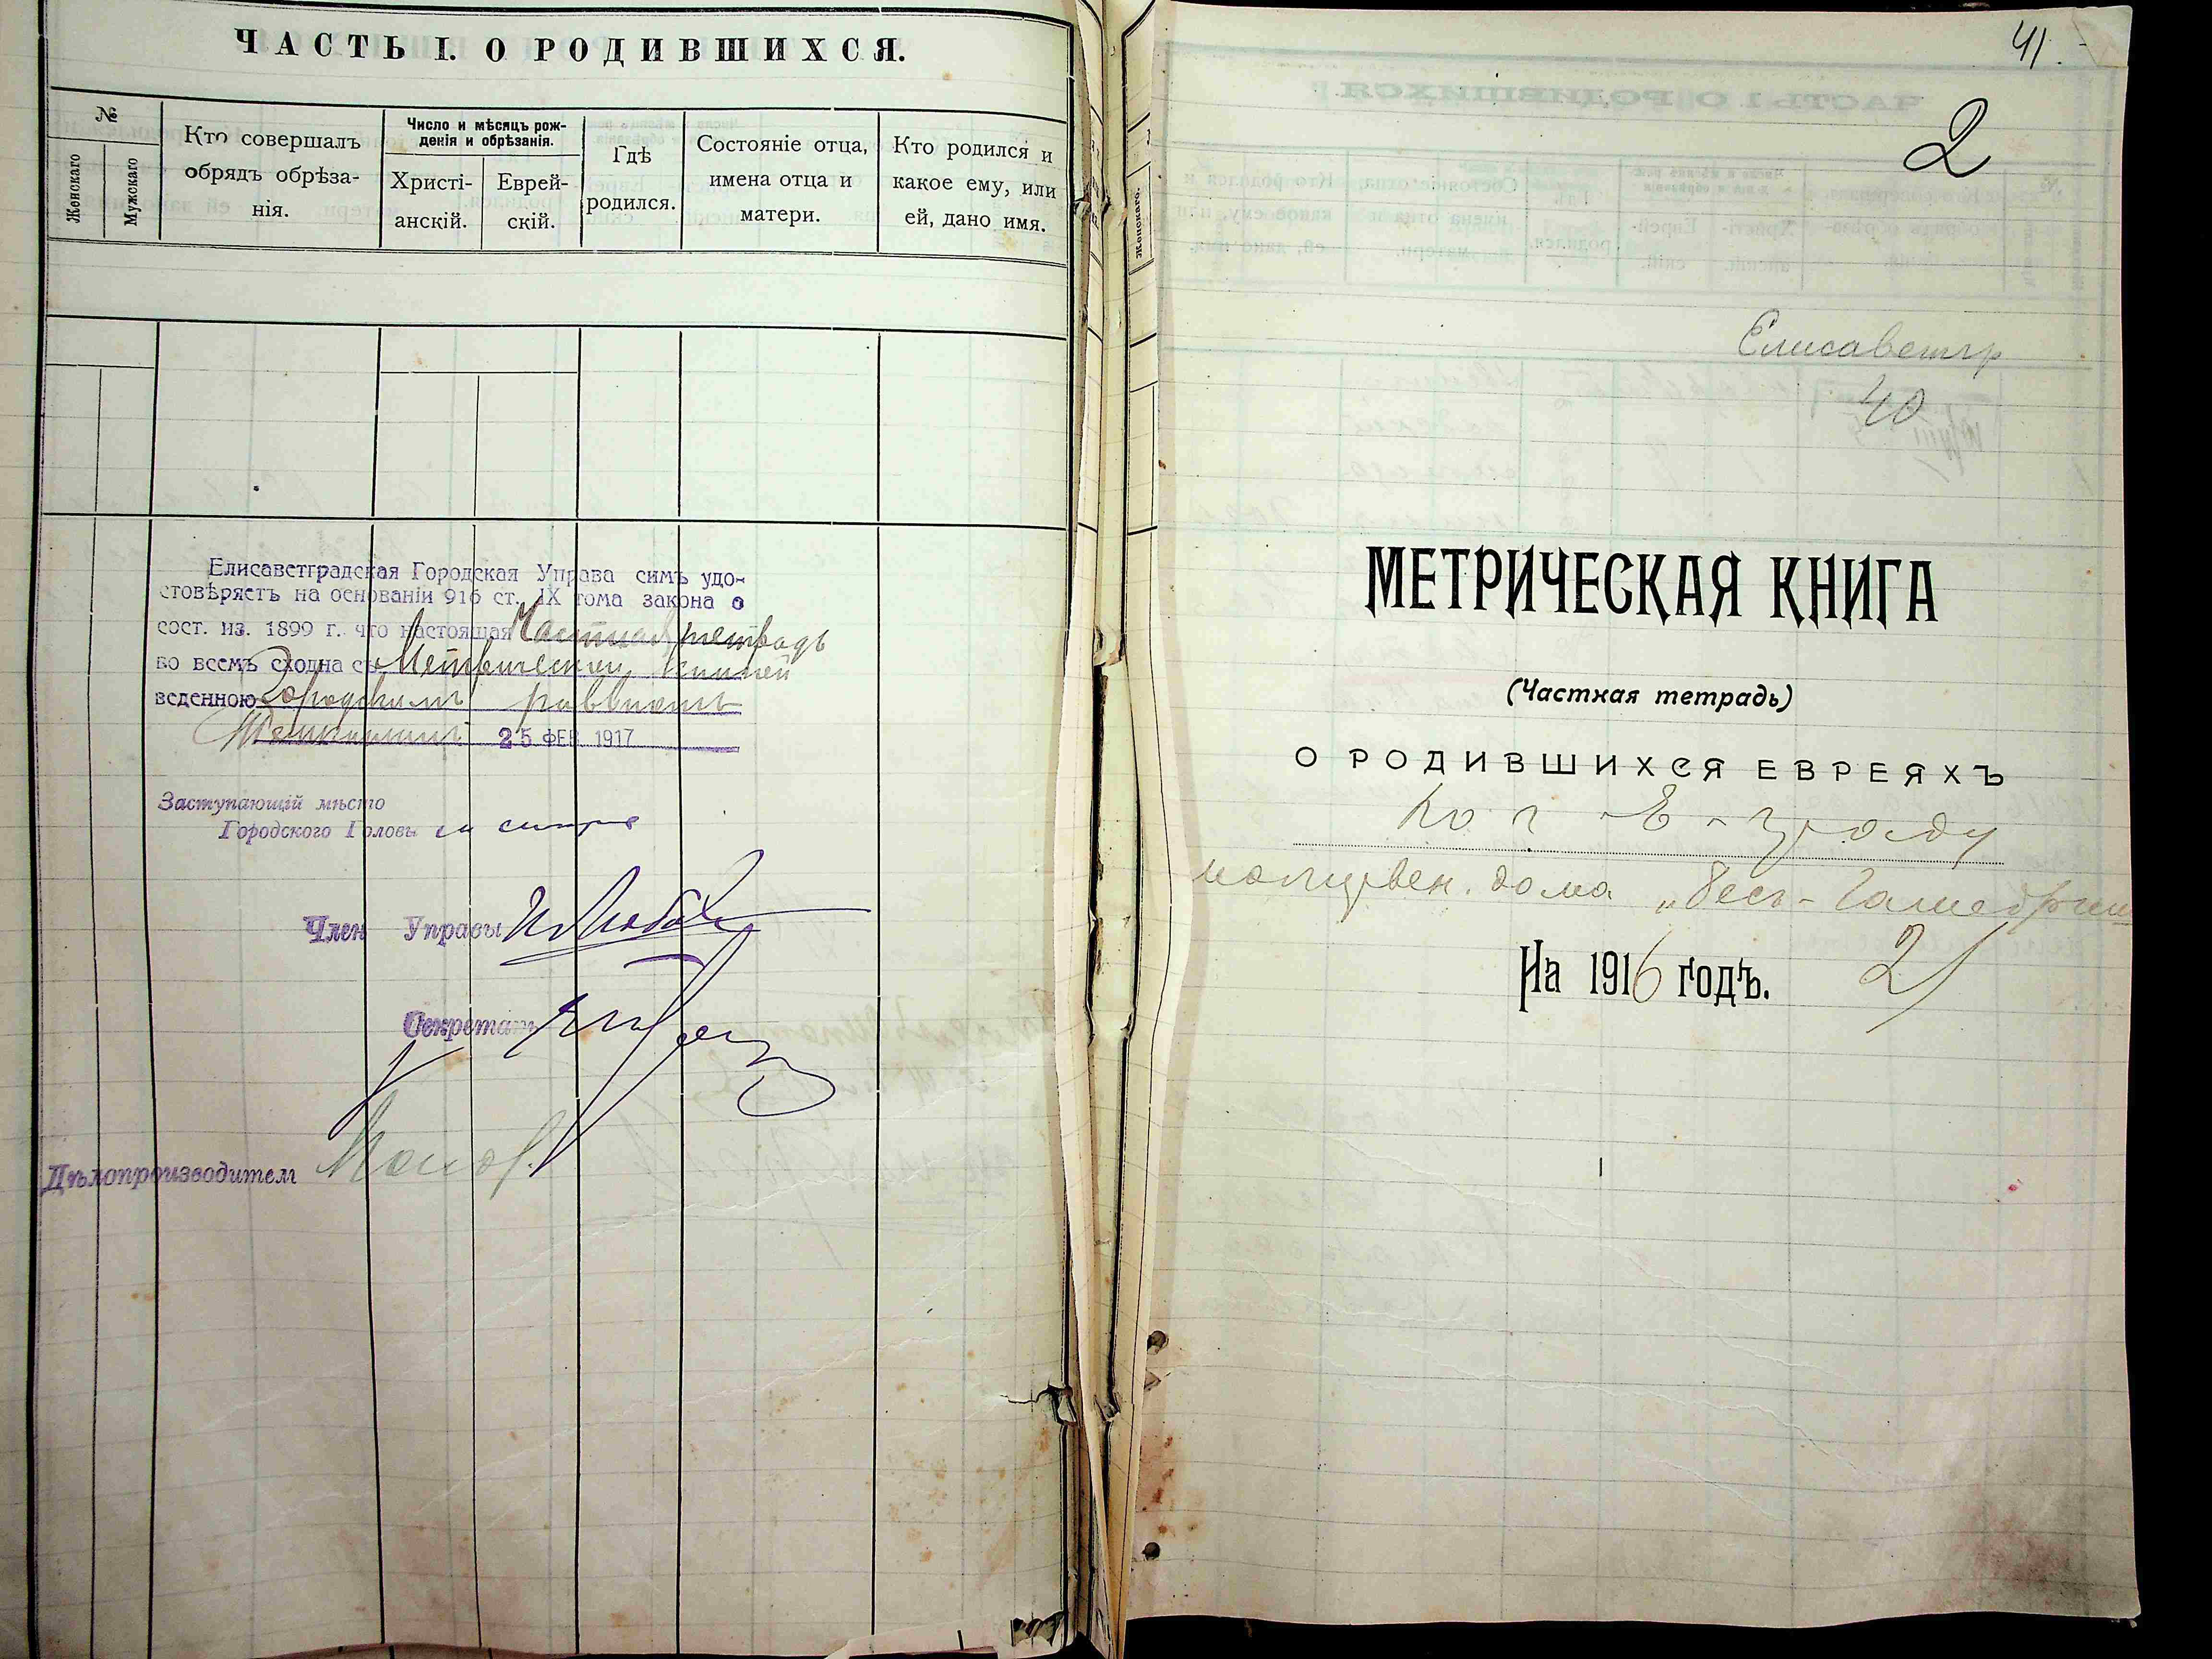 ЧАСТЬ I. О РОДИВШИХСЯ.
№
Женскаго
Мужскаго
Кто совершалъ
обрядъ обрѣза-
нія.
Число и мѣсяцъ рож-
денія и обрѣзанія.
Христі-
анскій.
Еврей-
скій.
Гдѣ
родился.
Состояніе отца,
имена отца и
матери.
Кто родился и
какое ему, или
ей, дано имя.
Елисаветградская Городская Управа симъ удо-
стовѣряетъ на основаніи 916 ст. IX тома закона о
сост. из. 1899 г. что настоящая Частная тетрадь
во всемъ сходна съ Метрической книгой
веденною Городскимъ раввиномъ
25 ФЕВ 1917
Заступающій мѣсто
Городского Головы
Член Управы
Секретарь
Дѣлопроизводитель
41.
2
Женскаго.
Елисаветгр
40
МЕТРИЧЕСКАЯ КНИГА
(Частная тетрадь)
О РОДИВШИХСЯ ЕВРЕЯХЪ
по г. Е-граду
молитвен. дома
На 1916 годъ.
2